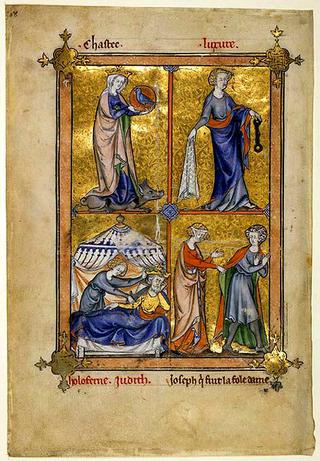 Chastee · luxure ·
holoferne · Judith · Joseph q̃ fuit la fole dame